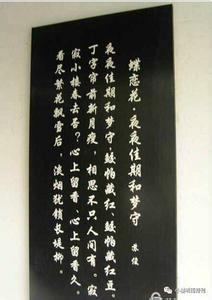 蝶恋花·夜夜佳期和梦守
苏俊
夜夜佳期和梦守。鲛帕藏红，鲛帕藏红豆。
丁字帘前新月瘦，相思不只人间有。寂
寂小楼春去否？心上留看，心上留看久。
看尽繁花飘雪后，淡烟犹锁长堤柳。